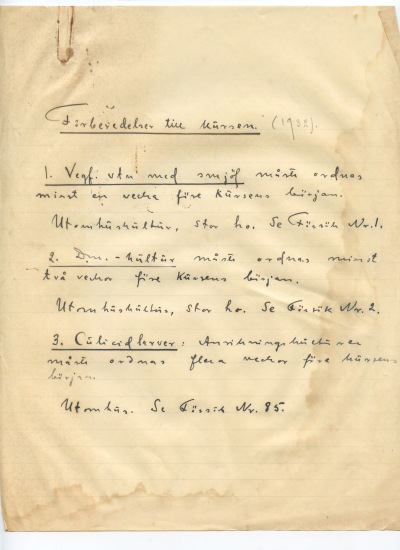 Förberedelser till kürsen. (1932).
1. Vegf. vtn med smjöf måste ordnas
minst en vecka före kürsens början.
Utomhüskültür, stor ho. Se Försök Nr. 1.
2. Dm.-kültür måste ordnas minst
två veckor före kürsens början.
Utomhüskültür, stor ho. Se Försök Nr. 2.
3. Cülicidlarver: Anrikningskültüren
måste ordnas flera veckor före kürsens
början.
Utomhüs. Se Försök Nr. 85.